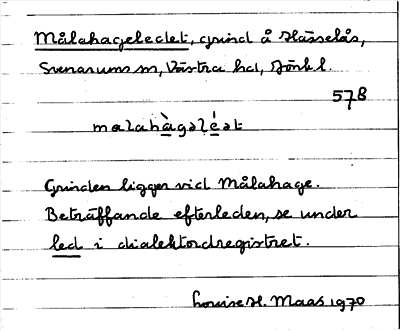 Målahageledet, grind å Hässelås,
Svenarums sn, Västra hd, Jönk l.
578
målahàgəléət
Grinden ligger vid Målahage.
Beträffande efterleden, se under
led i dialektordregistret.
Louise H. Maas 1970